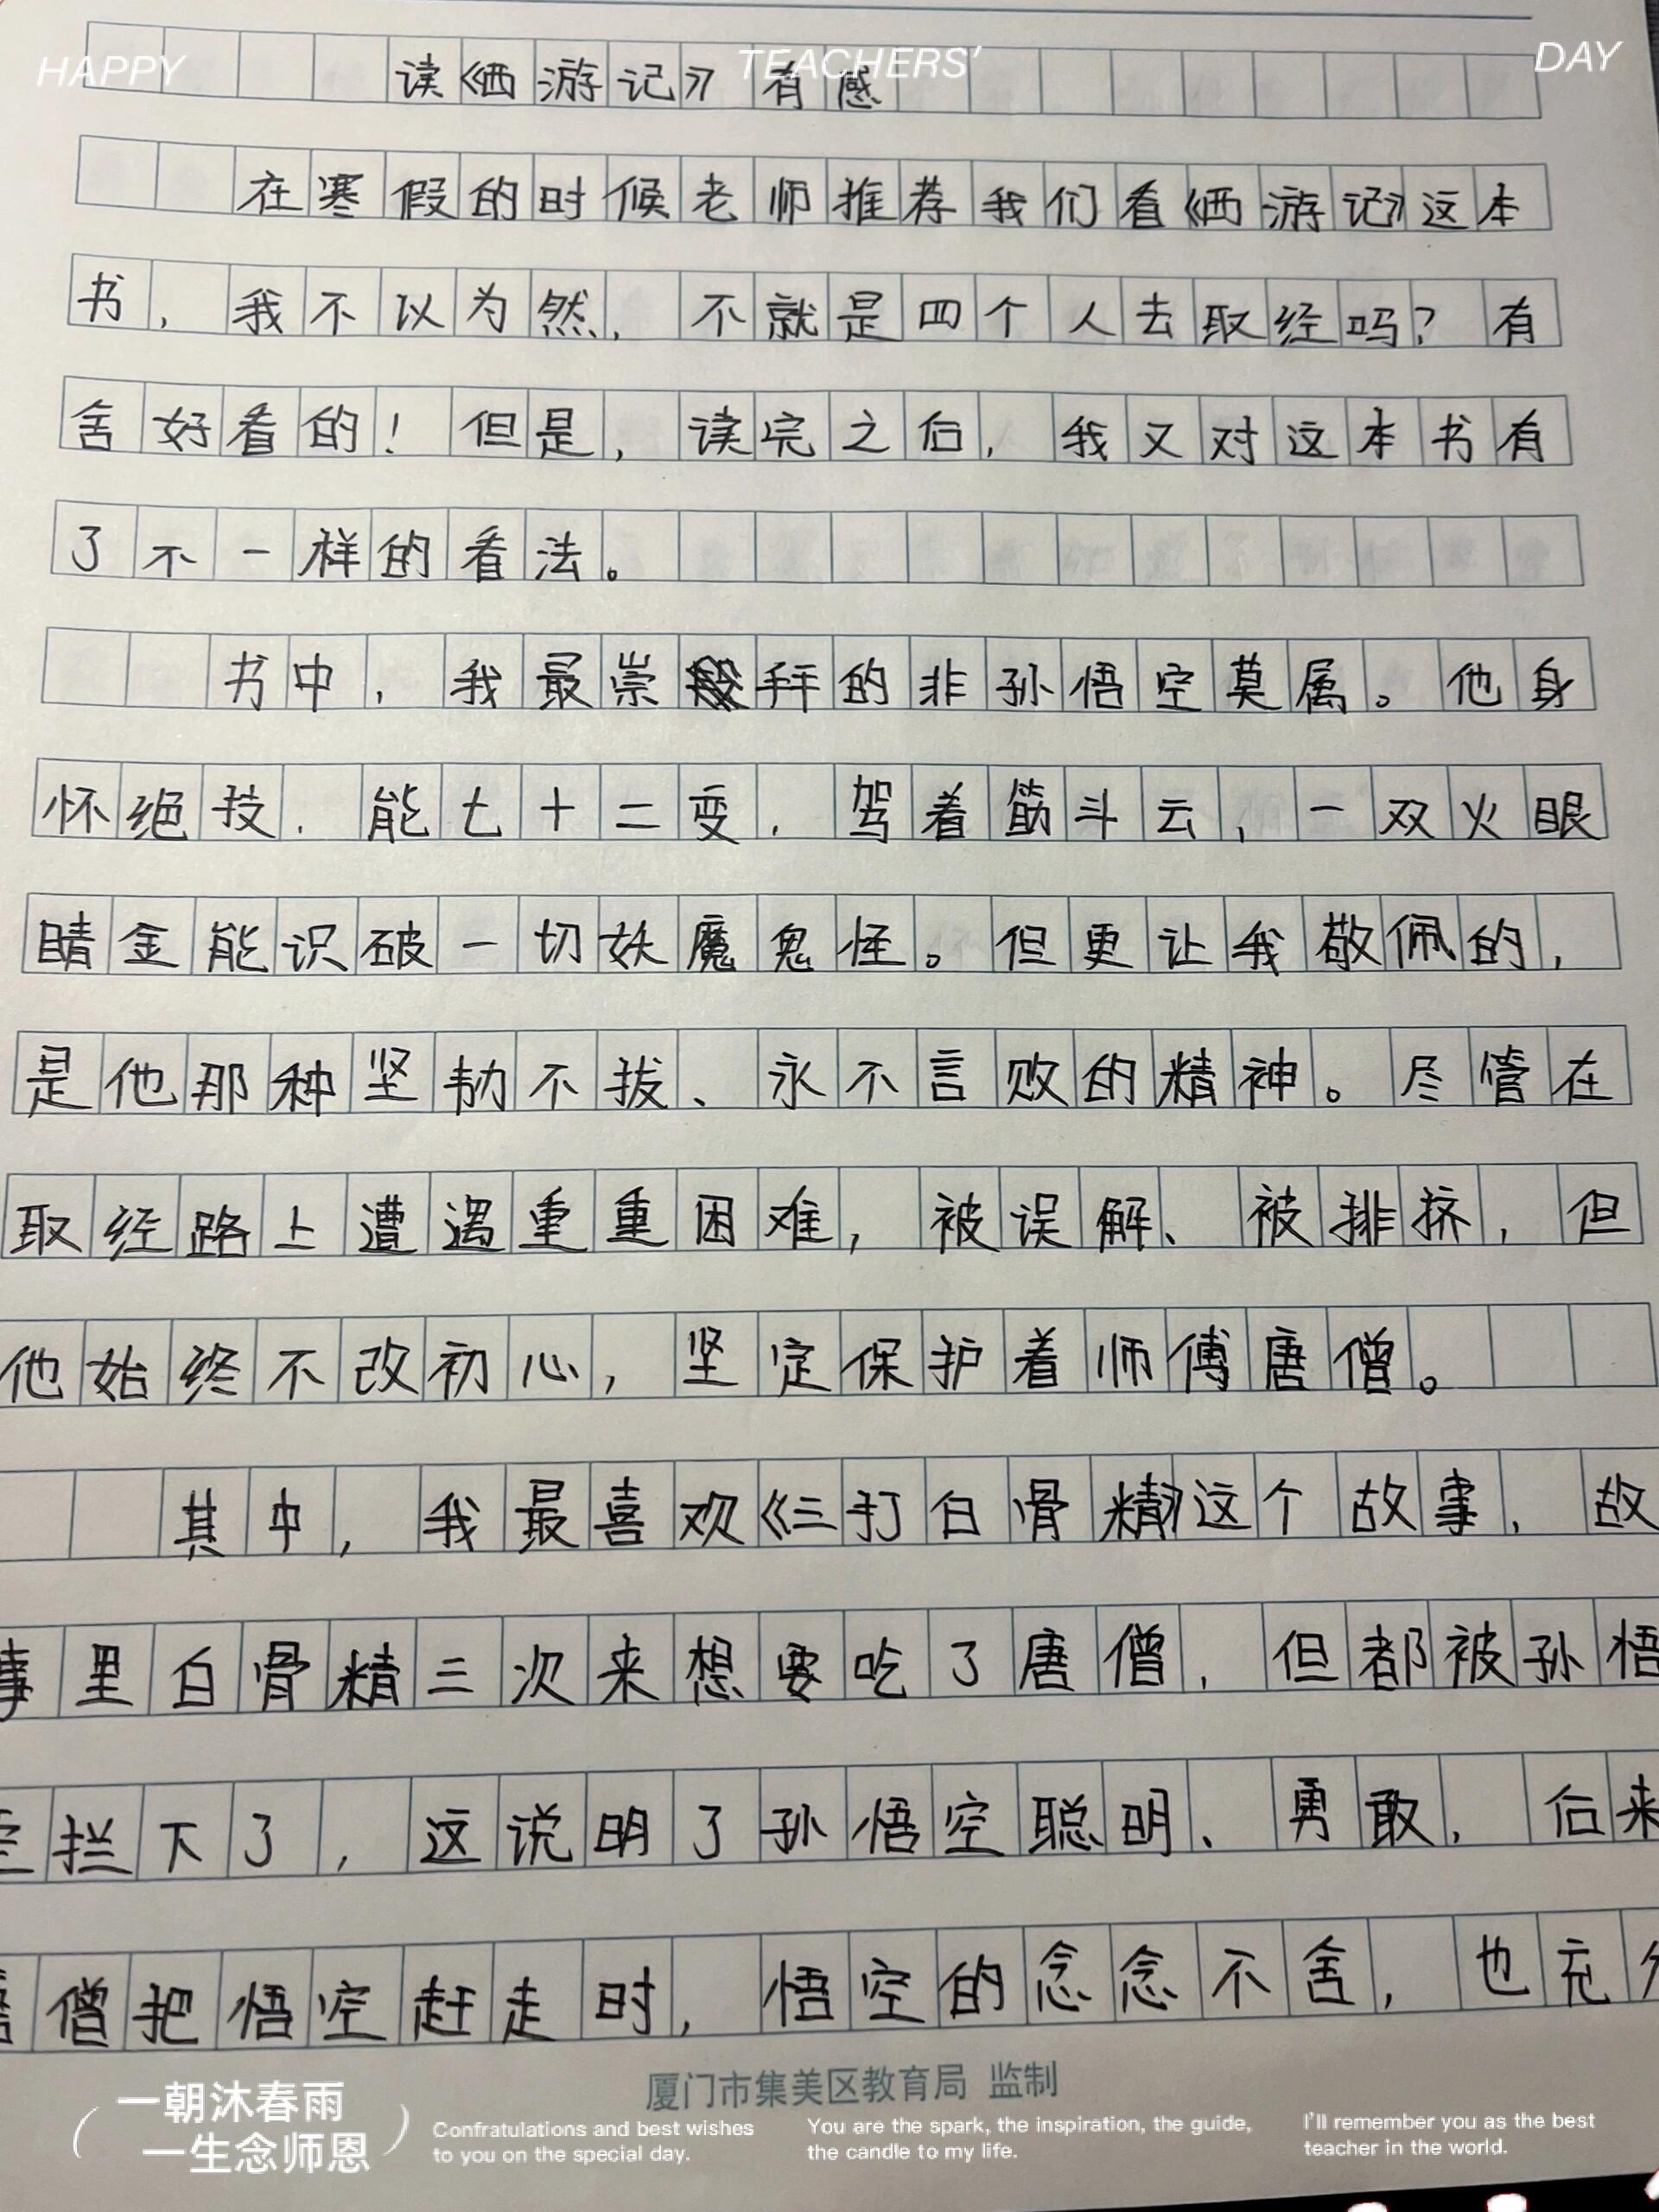 HAPPY TEACHERS' DAY
读《西游记》有感
在寒假的时候老师推荐我们看《西游记》这本
书，我不以为然，不就是四个人去取经吗？有
舍好看的！但是，读完之后，我又对这本书有
了不一样的看法。
书中，我最崇拜的非孙悟空莫属。他身
怀绝技，能七十二变，驾着筋斗云，一双火眼
睛金能识破一切妖魔鬼怪。但更让我敬佩的，
是他那种坚韧不拔、永不言败的精神。尽管在
取经路上遭遇重重困难，被误解、被排挤，但
他始终不改初心，坚定保护着师傅唐僧。
其中，我最喜欢《三打白骨精》这个故事，故
事里白骨精三次来想要吃了唐僧，但都被孙悟
空拦下了，这说明了孙悟空聪明、勇敢，后来
僧把悟空赶走时，悟空的念念不舍，也充
厦门市集美区教育局 监制
一朝沐春雨
一生念师恩
Confratulations and best wishes
to you on the special day.
You are the spark, the inspiration, the guide,
the candle to my life.
I'll remember you as the best
teacher in the world.